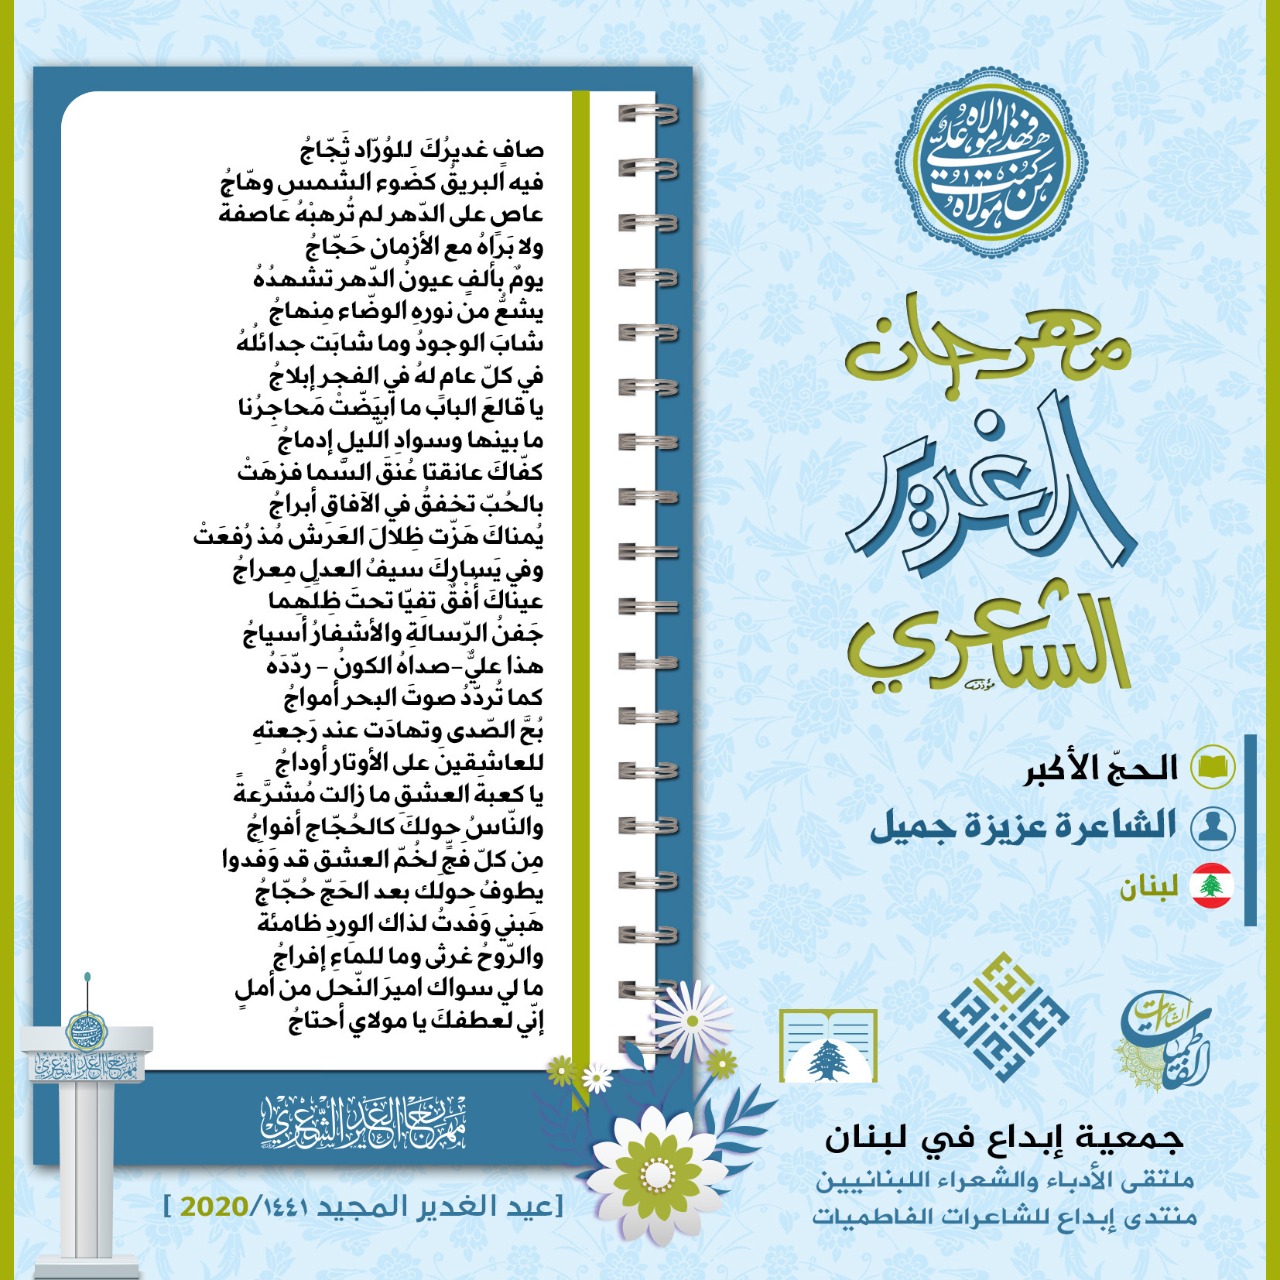 من كنت مولاه
فهذا مولاه علي
مهرجان
الغدير
الشاعري
الحجّ الأكبر
الشاعرة عزيزة جميل
لبنان
صافٍ غديرُكَ للوُرّاد ثَجّاجُ
فيه البريقُ كضَوء الشّمسِ وهّاجُ
عاصٍ على الدّهر لم تُرهبْهُ عاصفةٌ
ولا بَرَاهُ مع الأزمان حَجّاجُ
يومٌ بألفٍ عيونُ الدّهر تشهدُهُ
يشعُّ من نورهِ الوضّاء مِنهاجُ
شابَ الوجودُ وما شابَت جدائلُهُ
في كلّ عامٍ لهُ في الفجر إبلاجُ
يا قالعَ البابِ ما ابيَضّتْ مَحاجِرُنا
ما بينها وسوادِ الّليلِ إدماجُ
كفّاكَ عانقتا عُنقَ السَّما فزهَتْ
بالحُبّ تخفقُ في الآفاقِ أبراجُ
يُمناكَ هَزّت ظِلالَ العَرَش مُذ رُفعَتْ
وفي يَسارِكَ سيفُ العدلِ مِعراجُ
عيناكَ أُفْقٌ تفيّا تحتَ ظِلِّهِما
جَفنُ الرّسالةِ والأشفارُ أسياجُ
هذا عليٌّ-صداهُ الكونُ - ردّدَهُ
كما تُردّدُ صوتَ البحر أمواجُ
بُحَّ الصّدى وتهادَت عند رَجعتهِ
للعاشقينَ على الأوتار أوداجُ
يا كعبةَ العشقِ ما زالت مُشرَّعةً
والنّاسُ حولكَ كالحُجّاج أفواجُ
مِن كلّ فَجٍّ لخُمّ العشق قد وَفَدوا
يطوفُ حولَك بعد الحَجّ حُجّاجُ
هَبني وَفَدتُ لذاك الوِردِ ظامئة
والرّوحُ غرثى وما للمَاءِ إفراجُ
ما لي سواك اميرَ النّحل من أملٍ
إنّي لعطفكَ يا مولاي أحتاجُ
مهرجان الغدير الشعري
مهرجان الغدير الشعري
[عيد الغدير المجيد ١٤٤١/2020 ]
إبداع
الشاعرات
الفاطميات
جمعية إبداع في لبنان
ملتقى الأدباء والشعراء اللبنانيين
منتدى إبداع للشاعرات الفاطميات